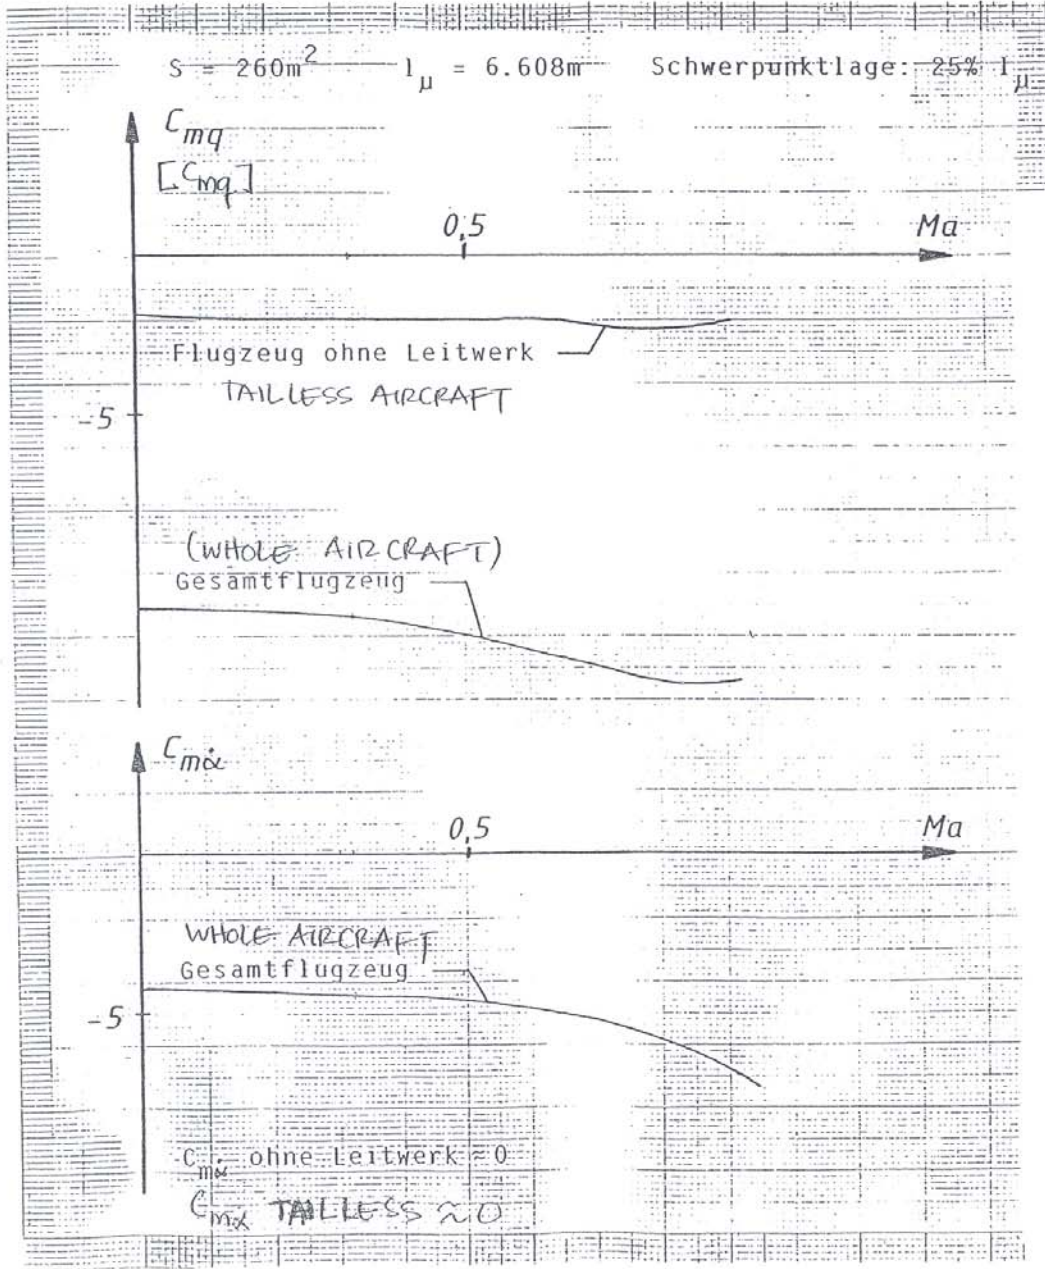 S = 260m² l_μ = 6.608m Schwerpunktlage: 25% l_μ
C_mq
[C_mq]
0,5 Ma
Flugzeug ohne Leitwerk
TAILLESS AIRCRAFT
-5
(WHOLE AIRCRAFT)
Gesamtflugzeug
C_mα̇
0,5 Ma
WHOLE AIRCRAFT
Gesamtflugzeug
-5
C_mα̇ ohne Leitwerk ≈ 0
C_mα̇ TAILLESS ≈ 0